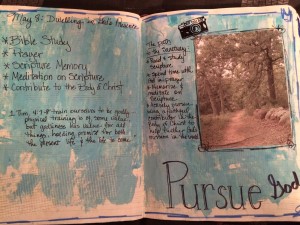 May 8: Dwelling in God's Presence
* Bible Study
* Prayer
* Scripture Memory
* Meditation on Scripture
* Contribute to the Body of Christ
1 Tim. 4:7-8 train ourselves to be godly
physical training is of some value
but godliness has value for all
things, holding promise for both
the present life & the life to come.
The Path
to
* Read & study
Scripture
* Spend time with
God in prayer
* Memorize &
meditate on
Scripture
* Actively pursue
being a faithful
contributor in the
body of Christ to
help further God's
mission in the world
Pursue God